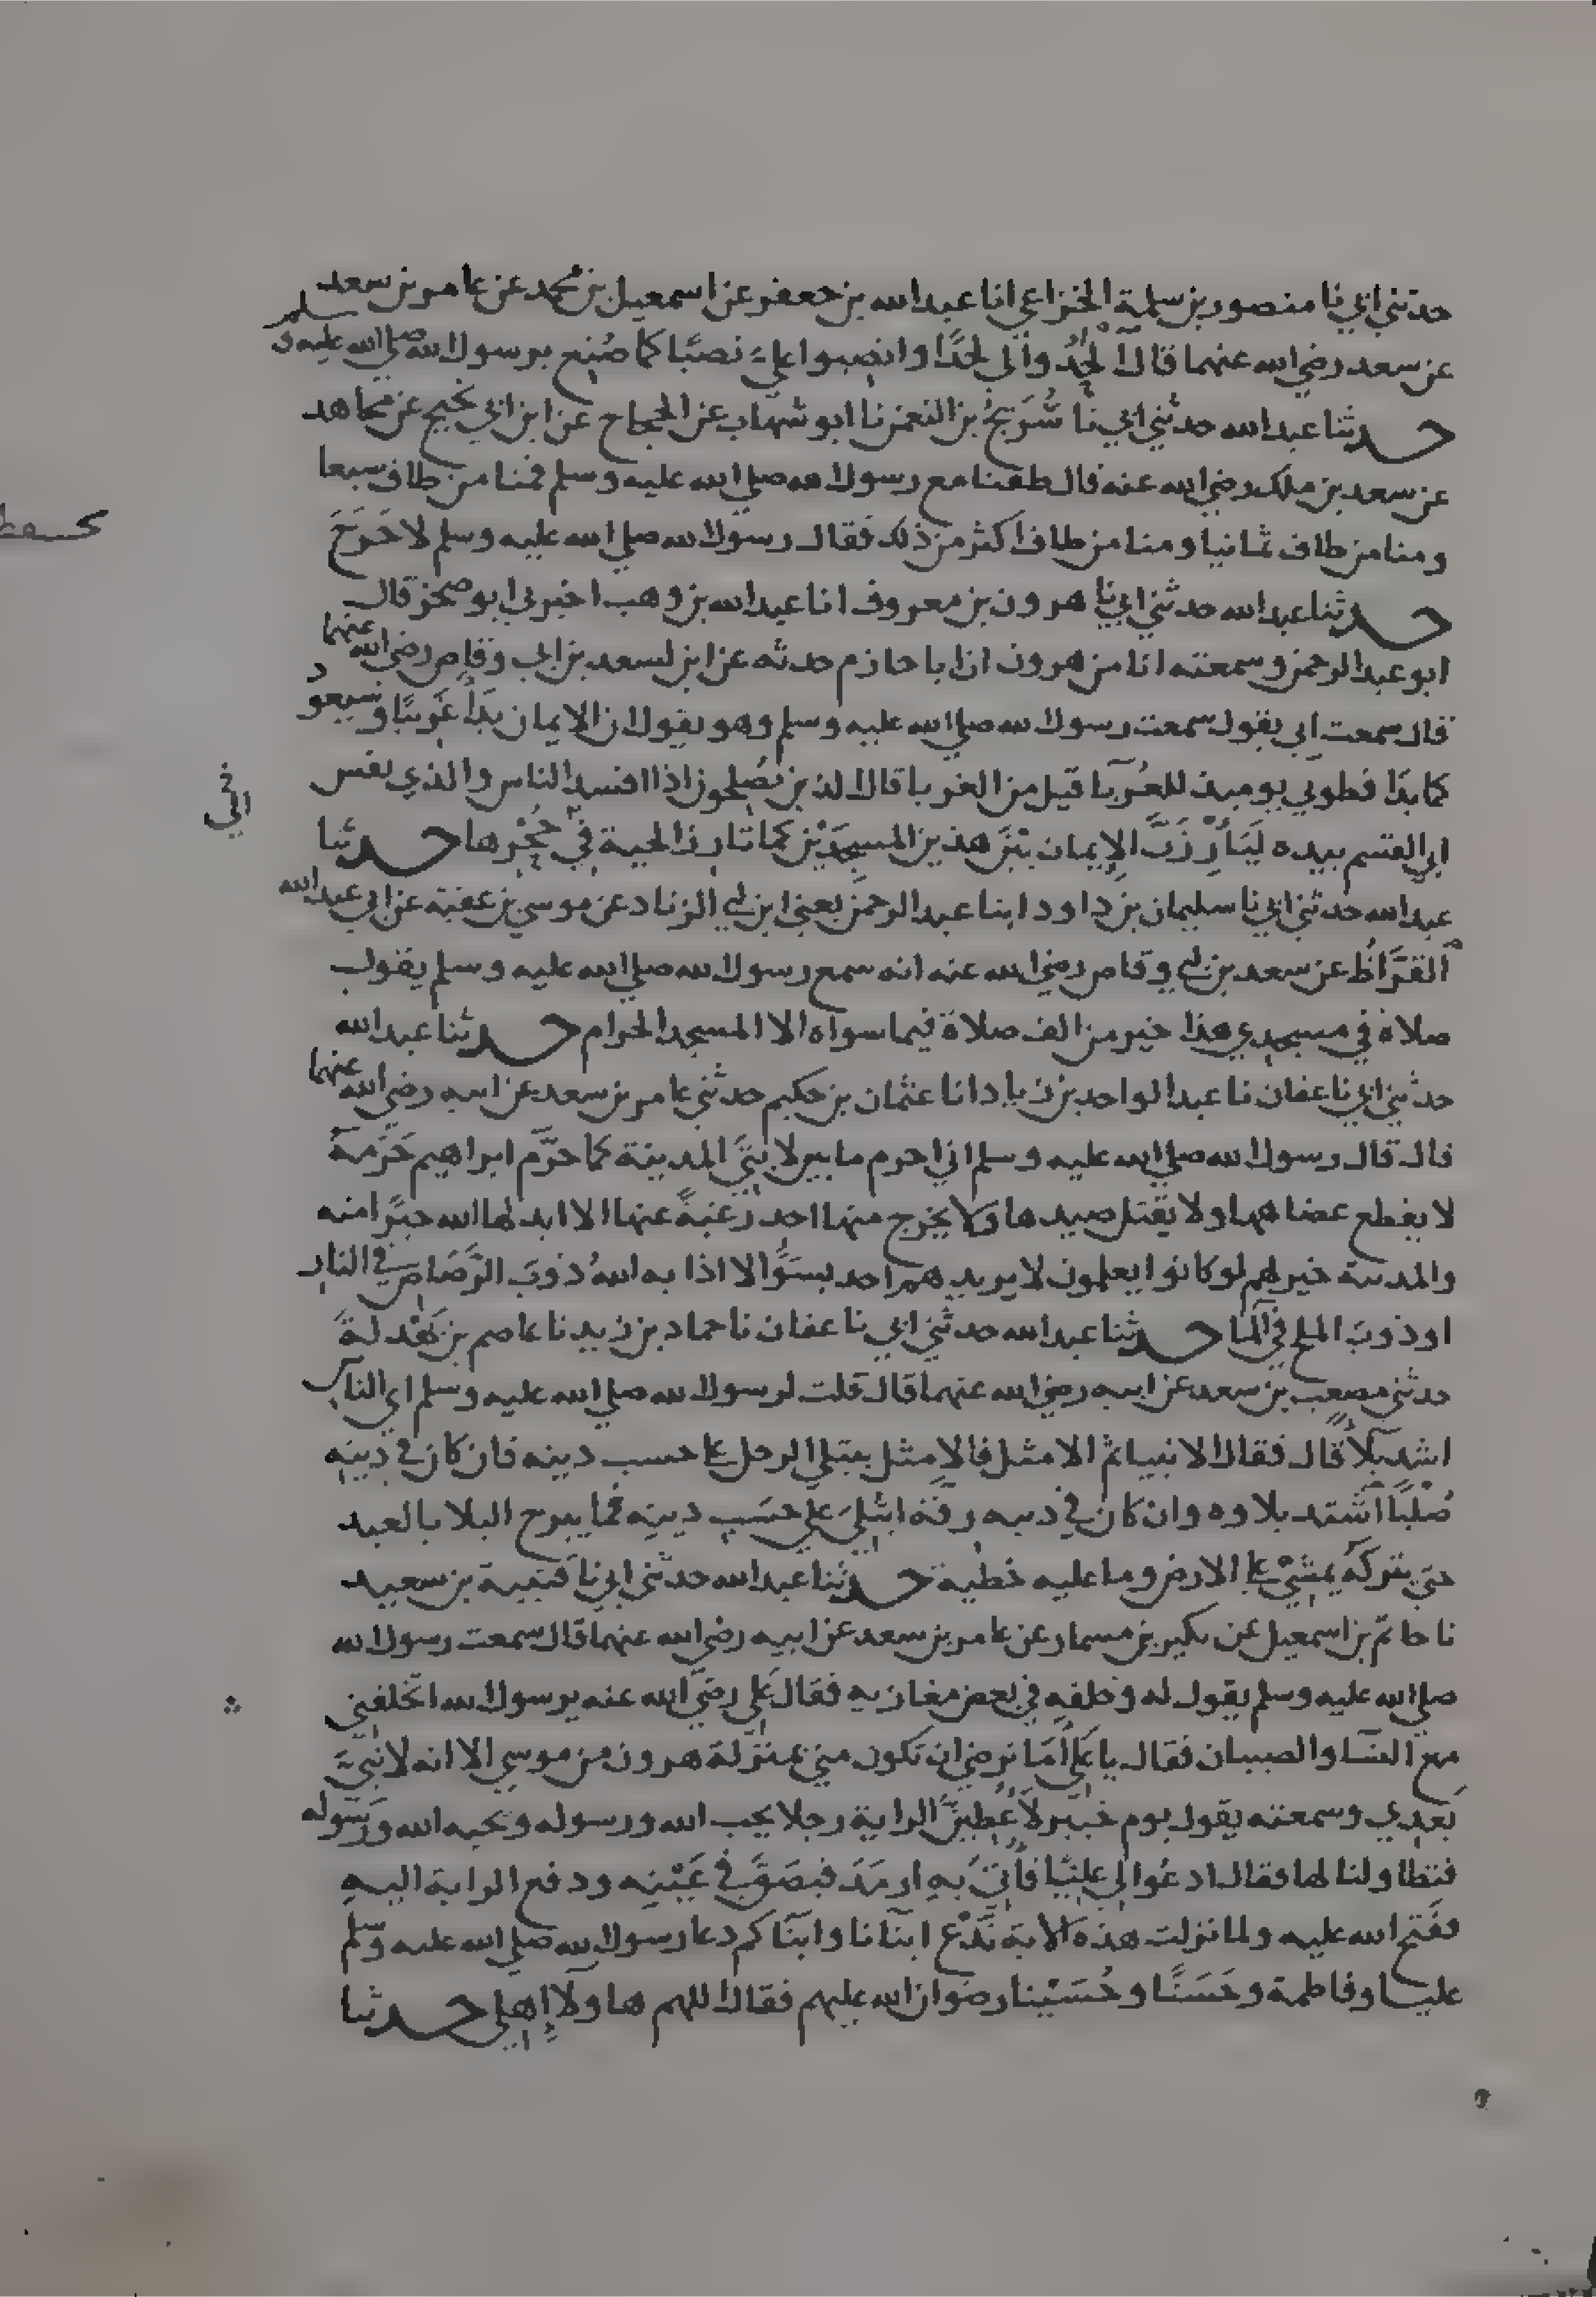 حدثني ابي نا منصور بن سلمة الخزاعي انا عبد الله بن جعفر عن اسمعيل بن محمد عن عامر بن سعد
عن سعد رضي الله عنهما قال الحدوا لي لحدا وانصبوا علي نصبا كما صنع برسول الله صلي الله عليه وسلم
حدثنا عبد الله حدثني ابي نا سريج بن النعمن نا ابو شهاب عن الحجاج عن ابن ابي نجيح عن مجاهد
عن سعد بن ملك رضي الله عنه قال طفنا مع رسول الله صلي الله عليه وسلم فمنا من طاف سبعا
ومنا من طاف ثمانيا ومنا من طاف اكثر من ذلك فقال رسول الله صلي الله عليه وسلم لا حَرَجَ
حدثنا عبد الله حدثني ابي نا هرون بن معروف انا عبد الله بن وهب اخبرني ابو صخر قال
ابو عبد الرحمن وسمعته انا من هرون ان ابا حازم حدثه عن ابن لسعد بن ابي وقاص رضي الله عنهما
قال سمعت ابي يقول سمعت رسول الله صلي الله عليه وسلم وهو يقول ان الايمان بدأ غريبا وسيعود
كما بدا فطوبي يوميذ للغربا قيل من الغربا قال الذين يصلحون اذا افسد الناس والذي نفس
ابي القسم بيده لَيَأْرِزَنَّ الإيمان بين هذين المسجدين كما تارز الحية في جُحْرها حدثنا
عبد الله حدثني ابي نا سليمان بن داود ابنا عبد الرحمن يعني ابن ابي الزناد عن موسي بن عقبة عن ابي عبد الله
القرَّاظ عن سعد بن ابي وقاص رضي الله عنه انه سمع رسول الله صلي الله عليه وسلم يقول
صلاة في مسجدي هذا خير من الف صلاة فيما سواه الا المسجد الحرام حدثنا عبد الله
حدثني ابي نا عفان نا عبد الواحد بن زياد انا عثمان بن حكيم حدثني عامر بن سعد عن ابيه رضي الله عنهما
قال قال رسول الله صلي الله عليه وسلم اني احرم ما بين لابتي المدينة كما حرَّم ابراهيم حَرَمهُ
لا يقطع عضاهها ولا يقتل صيدها ولا يخرج منها احد رغبةً عنها الا ابدلها الله خيرًا منه
والمدينة خير لهم لو كانوا يعلمون لا يريدهم احد بسوء الا اذابه الله ذوبَ الرَّصاص في النار
او ذوبَ الملح في الما حدثنا عبد الله حدثني ابي نا عفان نا حماد بن زيد نا عاصم بن بَهْدلة
حدثني مصعب بن سعد عن ابيه رضي الله عنهما قال قلت لرسول الله صلي الله عليه وسلم اي الناس
اشد بلاً قال فقال الانبيا ثم الامثل فالامثل يبتلي الرجل علي حسب دينه فان كان في دينه
صُلْبًا اشتد بلاوه وان كان في دينه رقة ابتُليَ علي حسَب دينِه فما يبرح البلا بالعبد
حتي يتركهُ يمشيْ علي الارض وما عليه خطية حدثنا عبد الله حدثني ابي نا قتيبة بن سعيد
نا حاتم بن اسمعيل عن بكير بن مسمار عن عامر بن سعد عن ابيه رضي الله عنهما قال سمعت رسول الله
صلي الله عليه وسلم يقول له وخلفه في بعض مغازيه فقال علي رضي الله عنه يرسول الله اتخلفني
مع النسا والصبيان فقال يا علي أَمَا ترضي ان تكون مني بمنزلة هرون من موسي الا انه لا نبيَّ
بَعدي وسمعته يقول يوم خيبر لأُعْطِينَّ الراية رجلا يحب الله ورسوله ويحبه الله ورسوله
فتطاولنا لها فقال ادعُوا لي عليًّا فأُتي بِهِ ارمدَ فبصَقَ في عَيْنِه ودفع الراية اليه
ففتح الله عليه ولما نزلت هذه الاية نَدْعُ ابنآنا وابنآكم دعا رسول الله صلي الله عليه وسلم
عليا وفاطمة وحَسَنًا وحُسَيْنا رضوان الله عليهم فقال اللهم هاولآ اهلي حدثنا